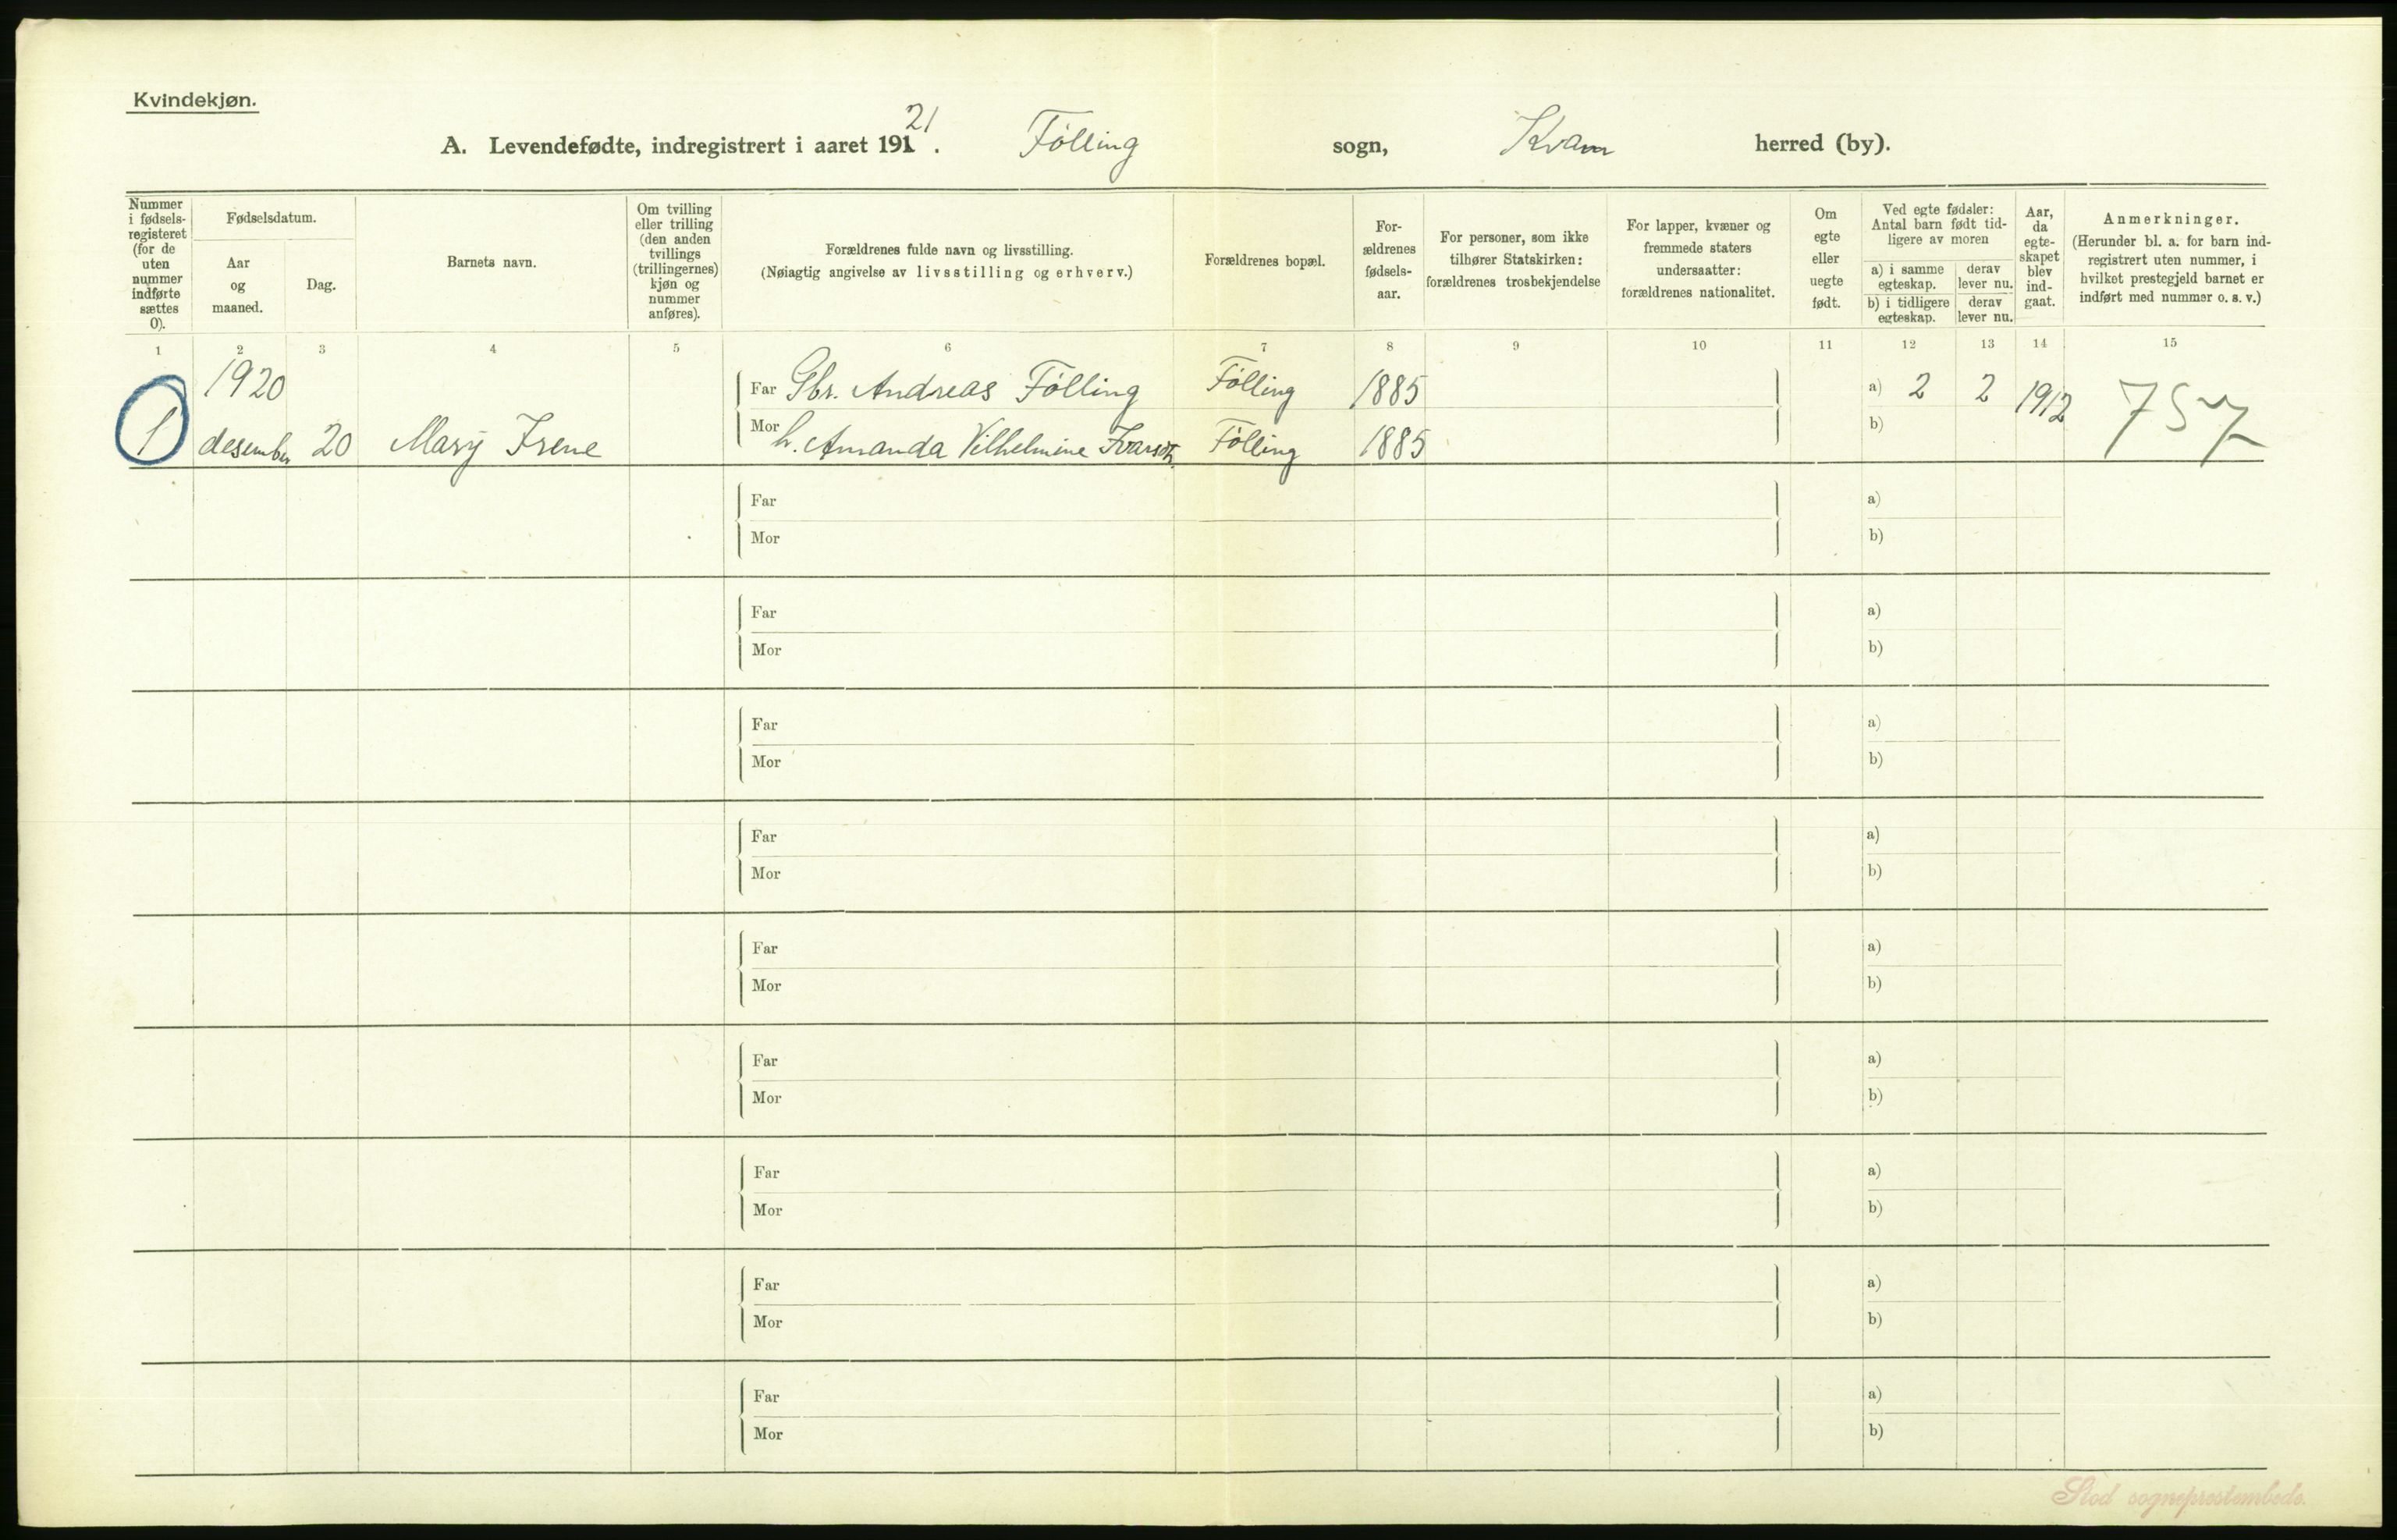 Kvindekjøn.
A. Levendefødte, indregistrert i aaret 191 21. Følling sogn, Kvam herred (by).
Nummer i fødsels-registeret (for de uten nummer indførte sættes 0).
Fødselsdatum.
Aar og maaned.
Dag.
Barnets navn.
Om tvilling eller trilling (den anden tvillings (trillingernes) kjøn og nummer anføres).
Forældrenes fulde navn og livsstilling.
(Nøiagtig angivelse av livsstilling og erhverv.)
Forældrenes bopæl.
For-ældrenes fødsels-aar.
For personer, som ikke tilhører Statskirken: forældrenes trosbekjendelse
For lapper, kvæner og fremmede staters undersaatter: forældrenes nationalitet.
Om egte eller uegte født.
Ved egte fødsler: Antal barn født tid-ligere av moren
a) i samme egteskap. derav lever nu.
b) i tidligere egteskap. derav lever nu.
Aar, da egte-skapet blev ind-gaat.
Anmerkninger.
(Herunder bl. a. for barn ind-registrert uten nummer, i hvilket prestegjeld barnet er indført med nummer o. s. v.)
1 2 3 4 5 6 7 8 9 10 11 12 13 14 15
1920 Far Gbr. Andreas Følling Følling 1885 a) 2 2 1912 757
1 desember 20 Mary Irene Mor h. Amanda Vilhelmine Følling 1885 b)
Far a)
Mor b)
Far a)
Mor b)
Far a)
Mor b)
Far a)
Mor b)
Far a)
Mor b)
Far a)
Mor b)
Far a)
Mor b)
Far a)
Mor b)
Far a)
Mor b)
Stod sogneprestembede.